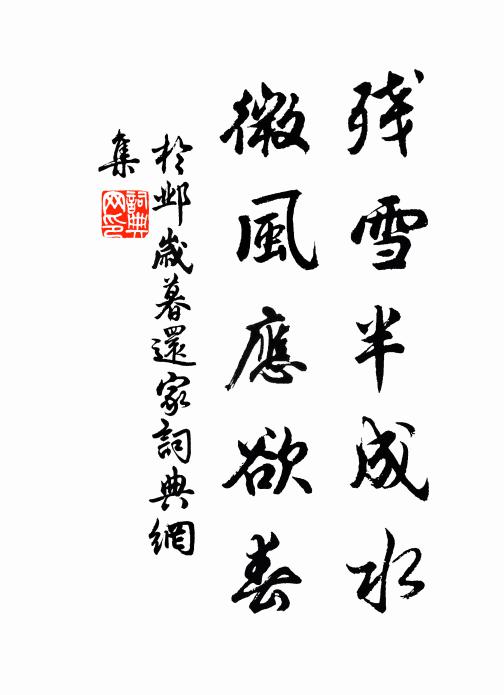 残雪半成水
微風應欲春
於邺歲暮還家詞典網
集
詞典
网印